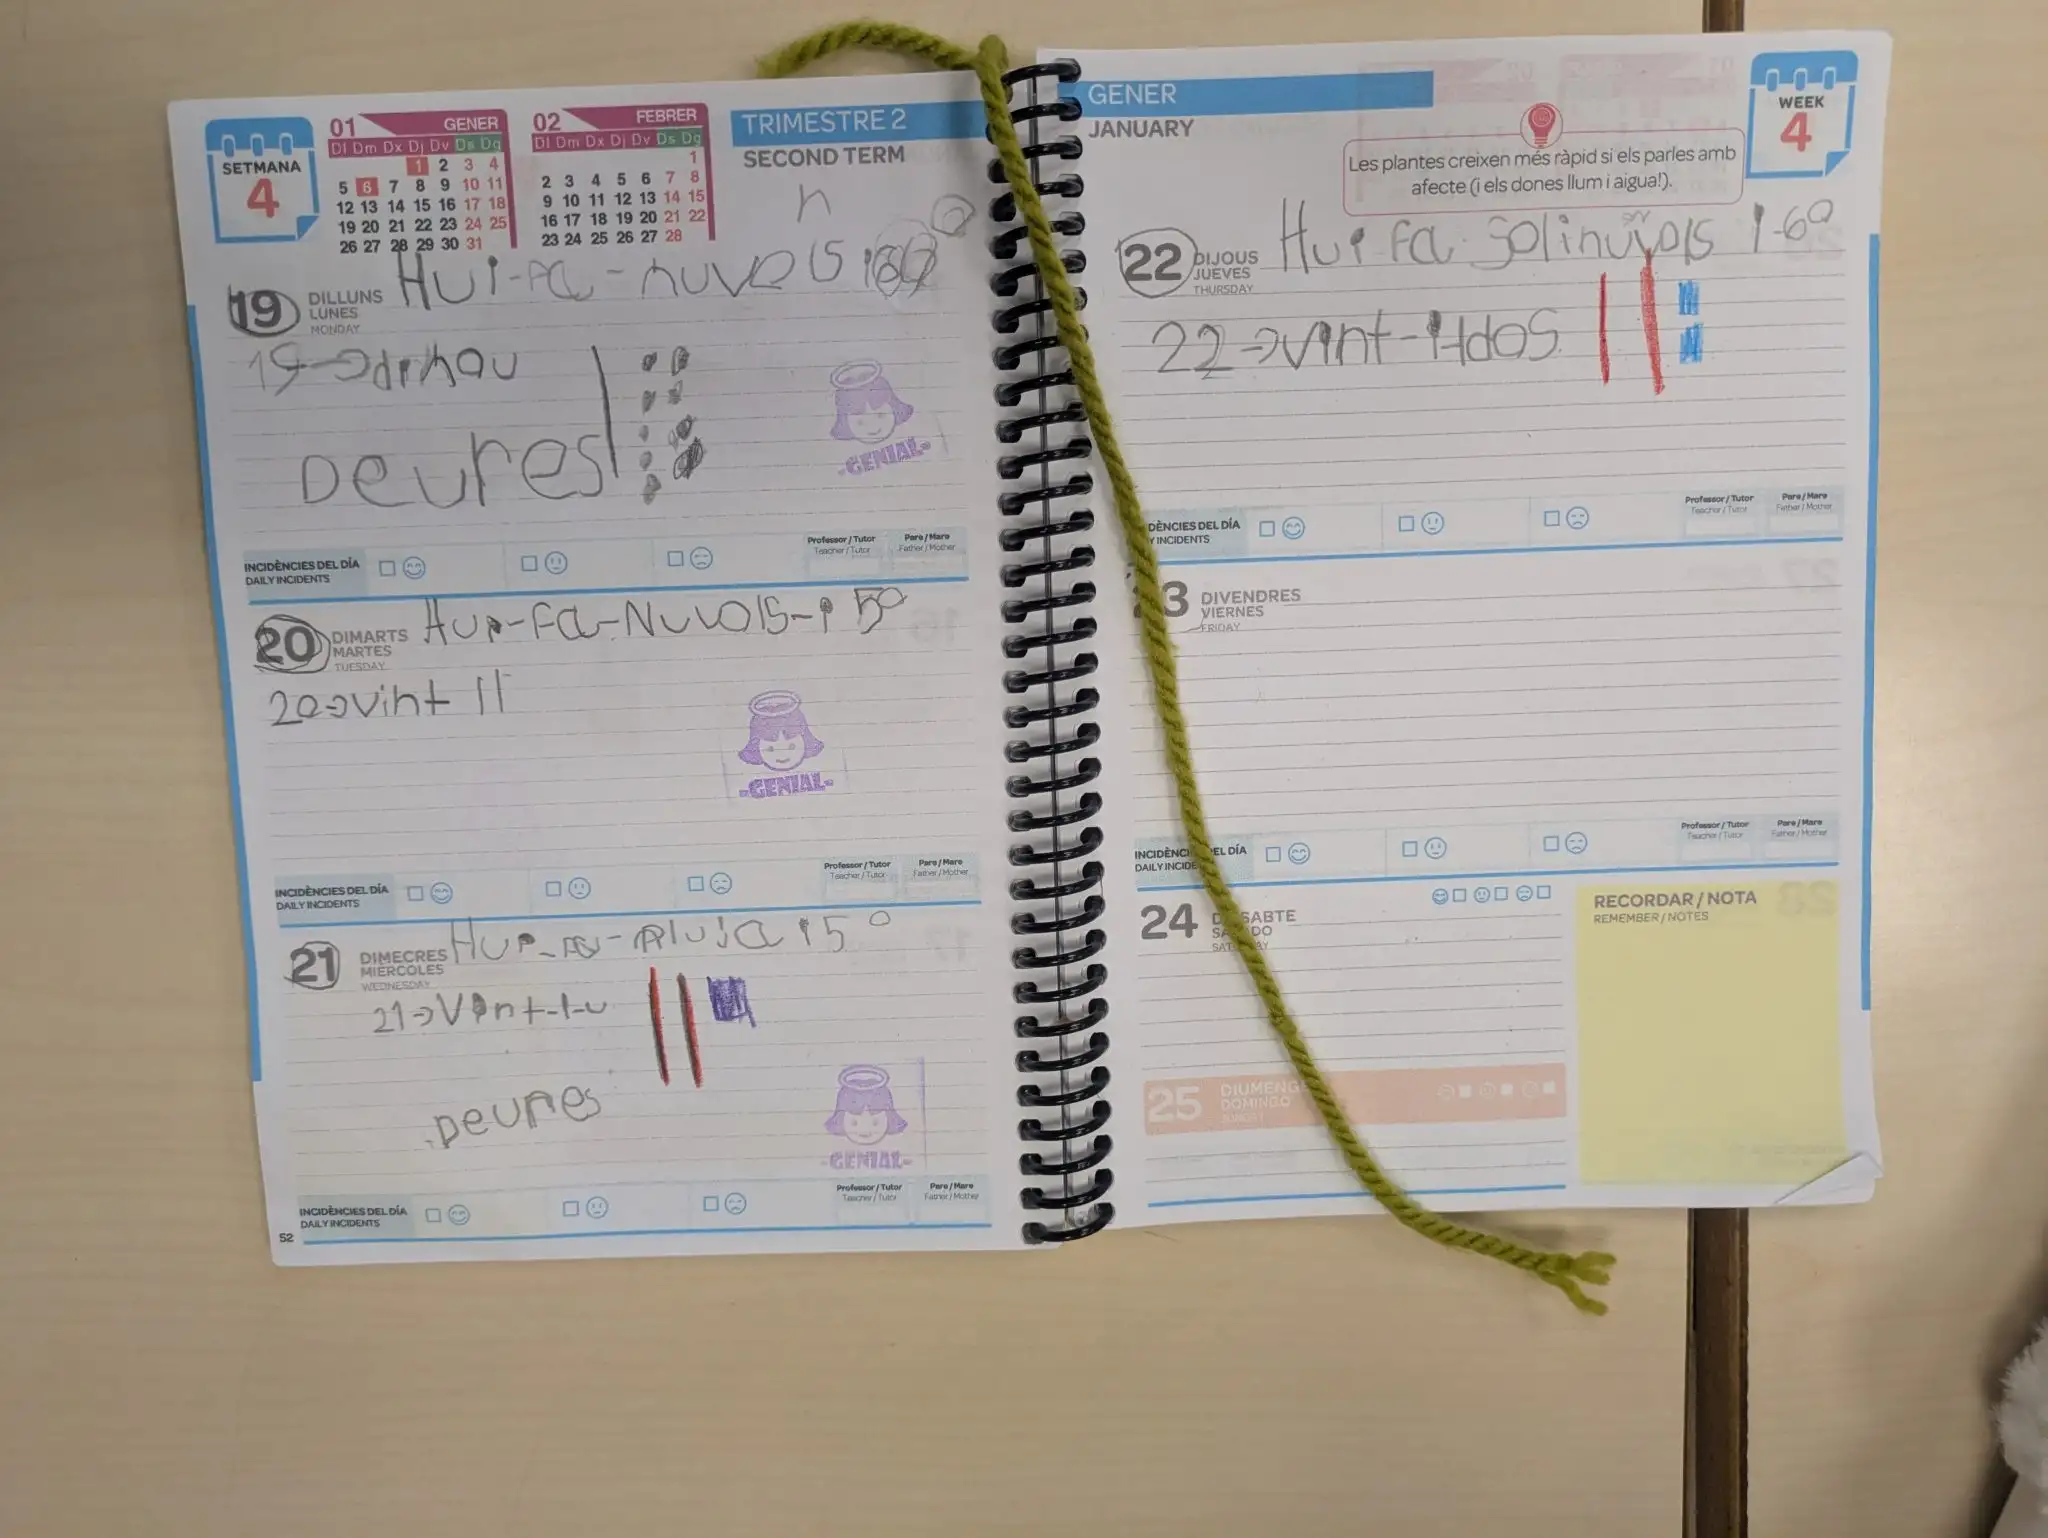 SETMANA
4
01 GENER
Dl Dm Dx Dj Dv Ds Dg
1 2 3 4
5 6 7 8 9 10 11
12 13 14 15 16 17 18
19 20 21 22 23 24 25
26 27 28 29 30 31
02 FEBRER
Dl Dm Dx Dj Dv Ds Dg
1
2 3 4 5 6 7 8
9 10 11 12 13 14 15
16 17 18 19 20 21 22
23 24 25 26 27 28
TRIMESTRE 2
SECOND TERM
h
19 DILLUNS
LUNES
MONDAY
HUI-FA-nuvols i
19→dihou
Deures
-GENIAL-
INCIDÈNCIES DEL DÍA
DAILY INCIDENTS
Professor / Tutor
Teacher / Tutor
Pare / Mare
Father / Mother
20 DIMARTS
MARTES
TUESDAY
HUI-FA-NUVOLS-i 5º
20→vint ||
-GENIAL-
INCIDÈNCIES DEL DÍA
DAILY INCIDENTS
Professor / Tutor
Teacher / Tutor
Pare / Mare
Father / Mother
21 DIMECRES
MIÉRCOLES
WEDNESDAY
HUI-FA-Pluja i 5º
21→Vint-i-u
Deures
-GENIAL-
INCIDÈNCIES DEL DÍA
DAILY INCIDENTS
Professor / Tutor
Teacher / Tutor
Pare / Mare
Father / Mother
52
GENER
JANUARY
Les plantes creixen més ràpid si els parles amb
afecte (i els dones llum i aigua!).
WEEK
4
22 DIJOUS
JUEVES
THURSDAY
Hui Fa Solinuvols i-6º
22→vint-i-dos
DÈNCIES DEL DÍA
Y INCIDENTS
Professor / Tutor
Teacher / Tutor
Pare / Mare
Father / Mother
23 DIVENDRES
VIERNES
FRIDAY
INCIDÈNCIES DEL DÍA
DAILY INCIDE
Professor / Tutor
Teacher / Tutor
Pare / Mare
Father / Mother
24 DISSABTE
SÁBADO
SATURDAY
25 DIUMENGE
DOMINGO
SUNDAY
RECORDAR / NOTA
REMEMBER / NOTES